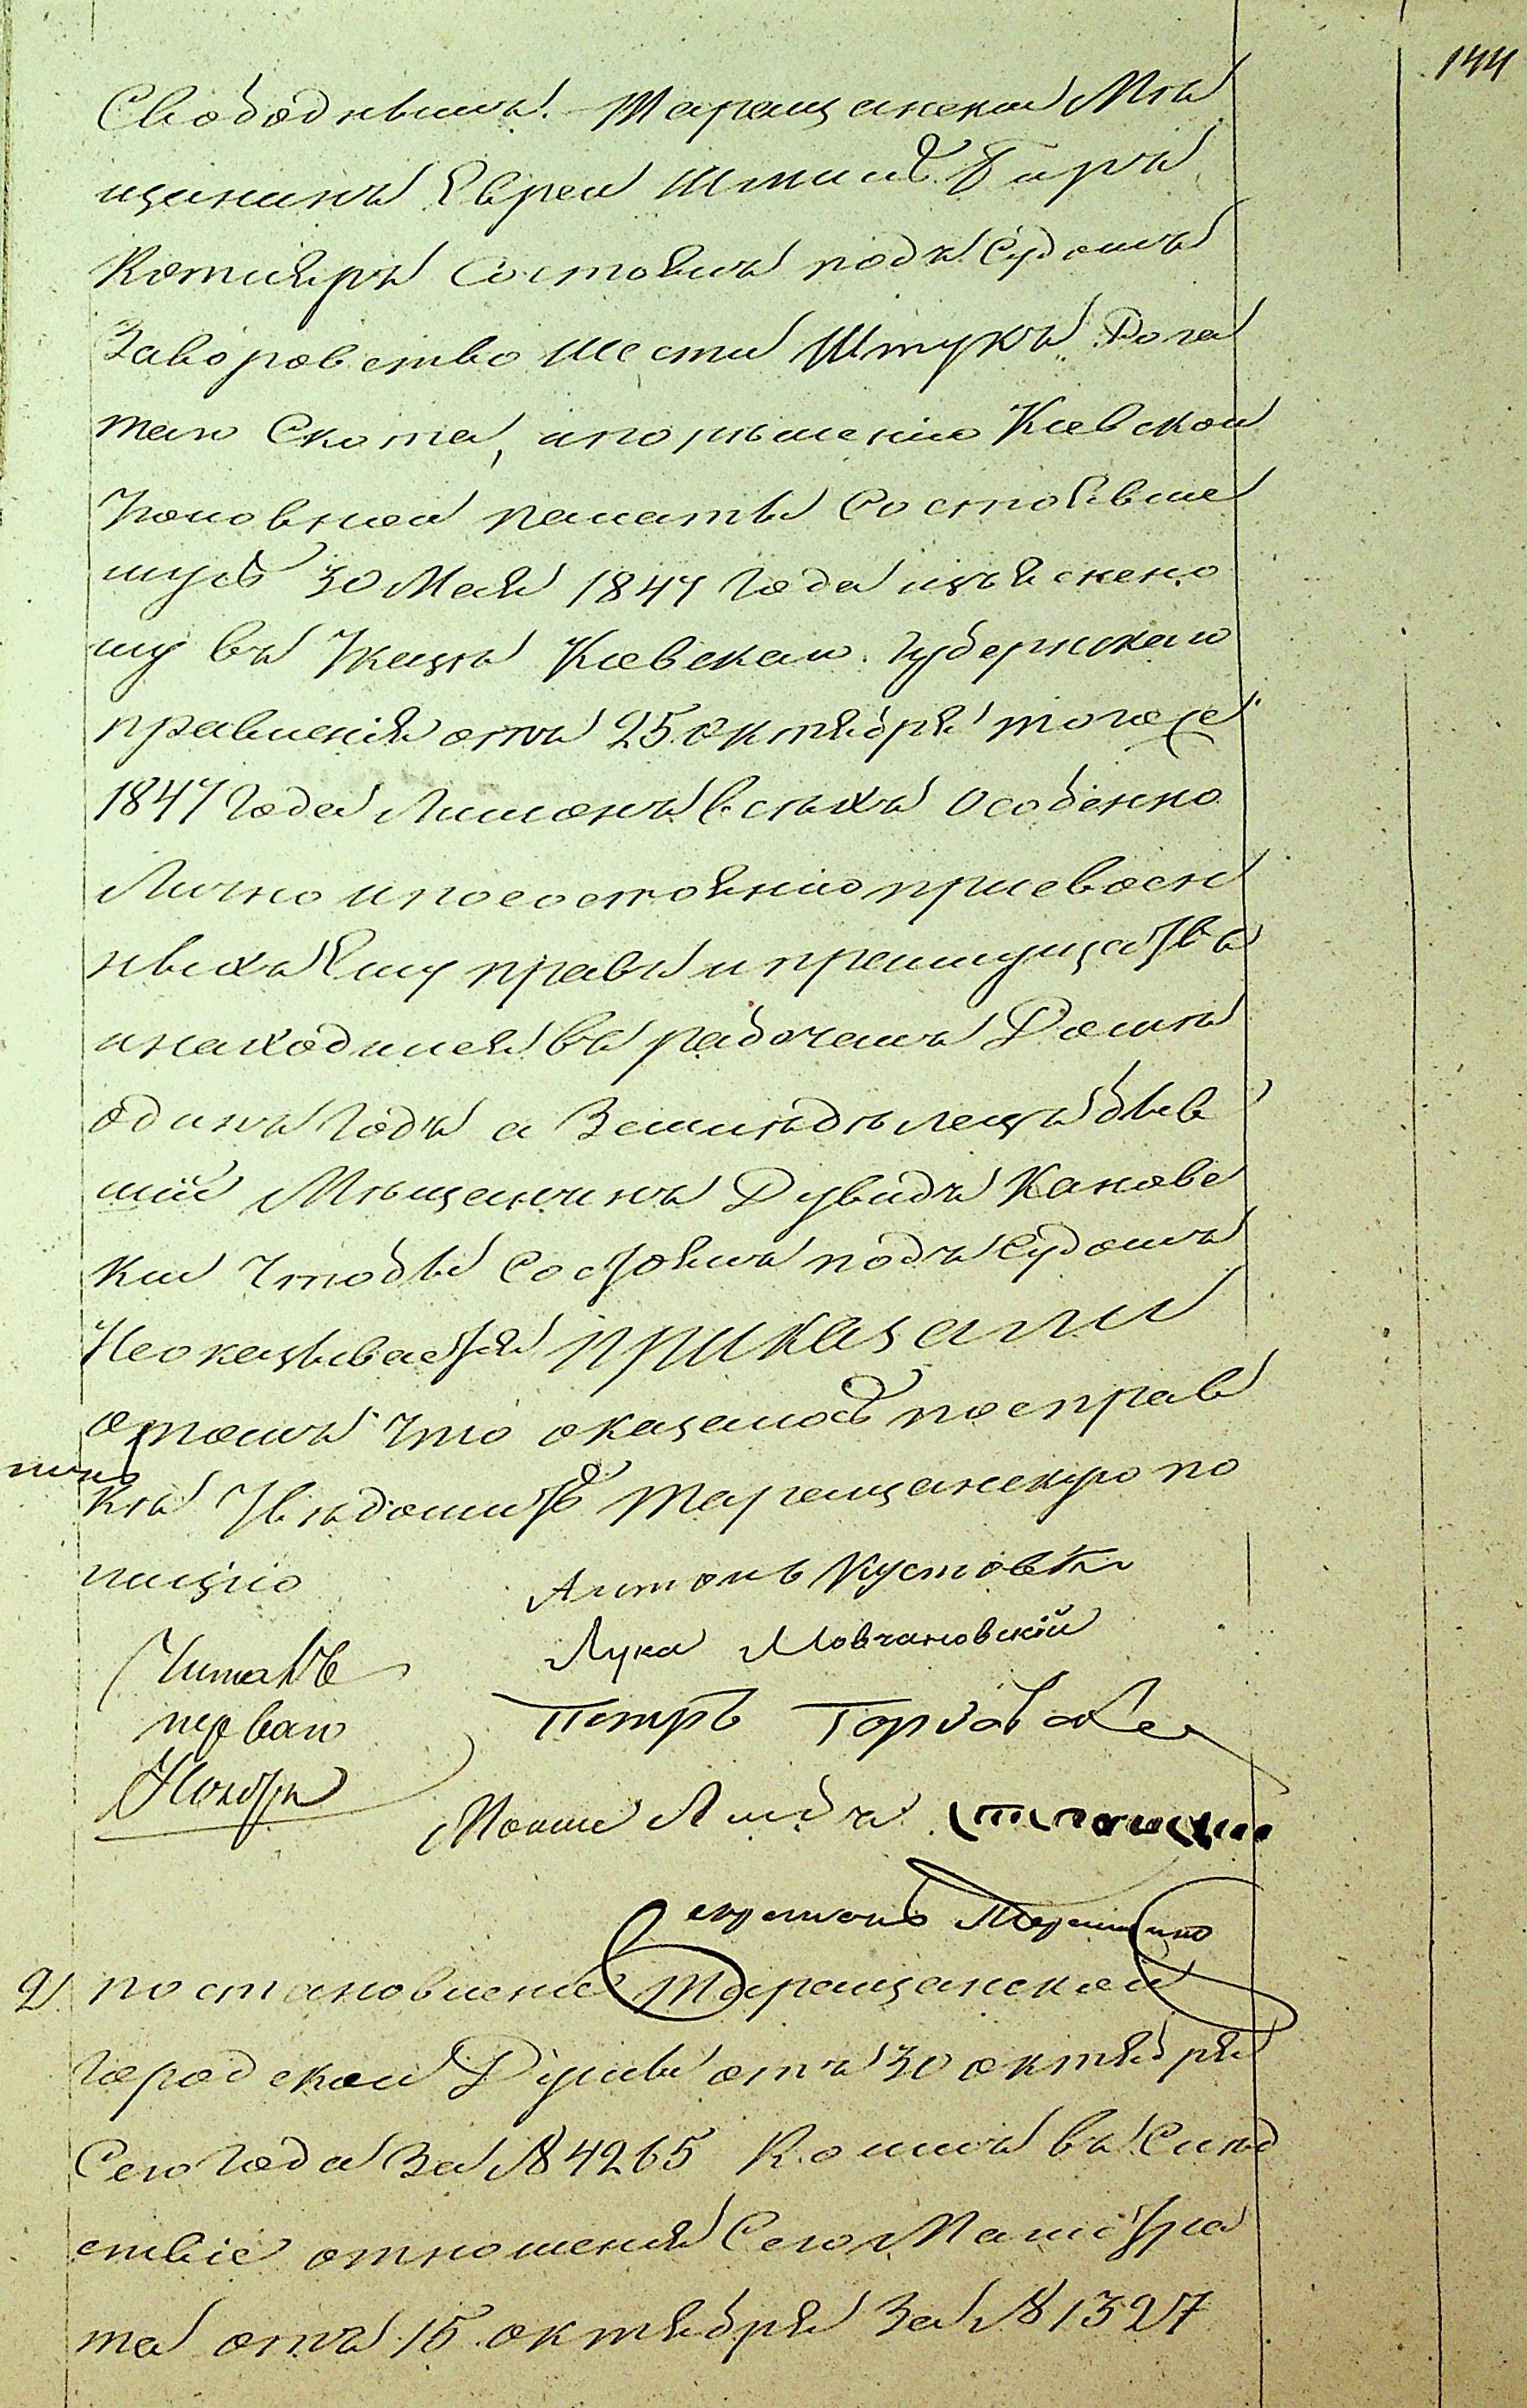 144
Свободнымъ. Таращанскии Мѣ
щанинъ Еврей Шмиль Беръ
Котляръ Состоялъ подъ Судомъ
Заворовство Шести Штукъ Рога
таго Скота, ипорѣшенію Кіевской
Уголовной палаты Состоявше
муся 30 Мая 1847 Года изъяснено
му въ Указѣ Кіевскаго Губернскаго
правленія отъ 25 октября тогоже
1847 Года Лишонъ всѣхъ Особенно
Лично ипосостоянію присвоен
ныхъ Ему правъ и преимуществъ
инаходился въ рабочемъ Домѣ
одинъ Годъ а Земледѣлецъ быв
шій Мѣщанинъ Дувидъ Канѳве
кии Чтобы Состоялъ подъ Судомъ
Неоказывается приказали
отомъ что оказалось посправ
кѣ Увѣдомить Таращанскую по
лицію
Антонъ Кустовскій
Лука Мовчановскій
Читалъ
перваго
Ноября
Петръ
Мошко Лейба
2) постановленіе Таращанской
Городской Думы отъ 30 октября
Сего Года За № 4265 Коимъ въ Слѣд
ствіе отношенія Сего Магистра
та отъ 15 октября За № 1327